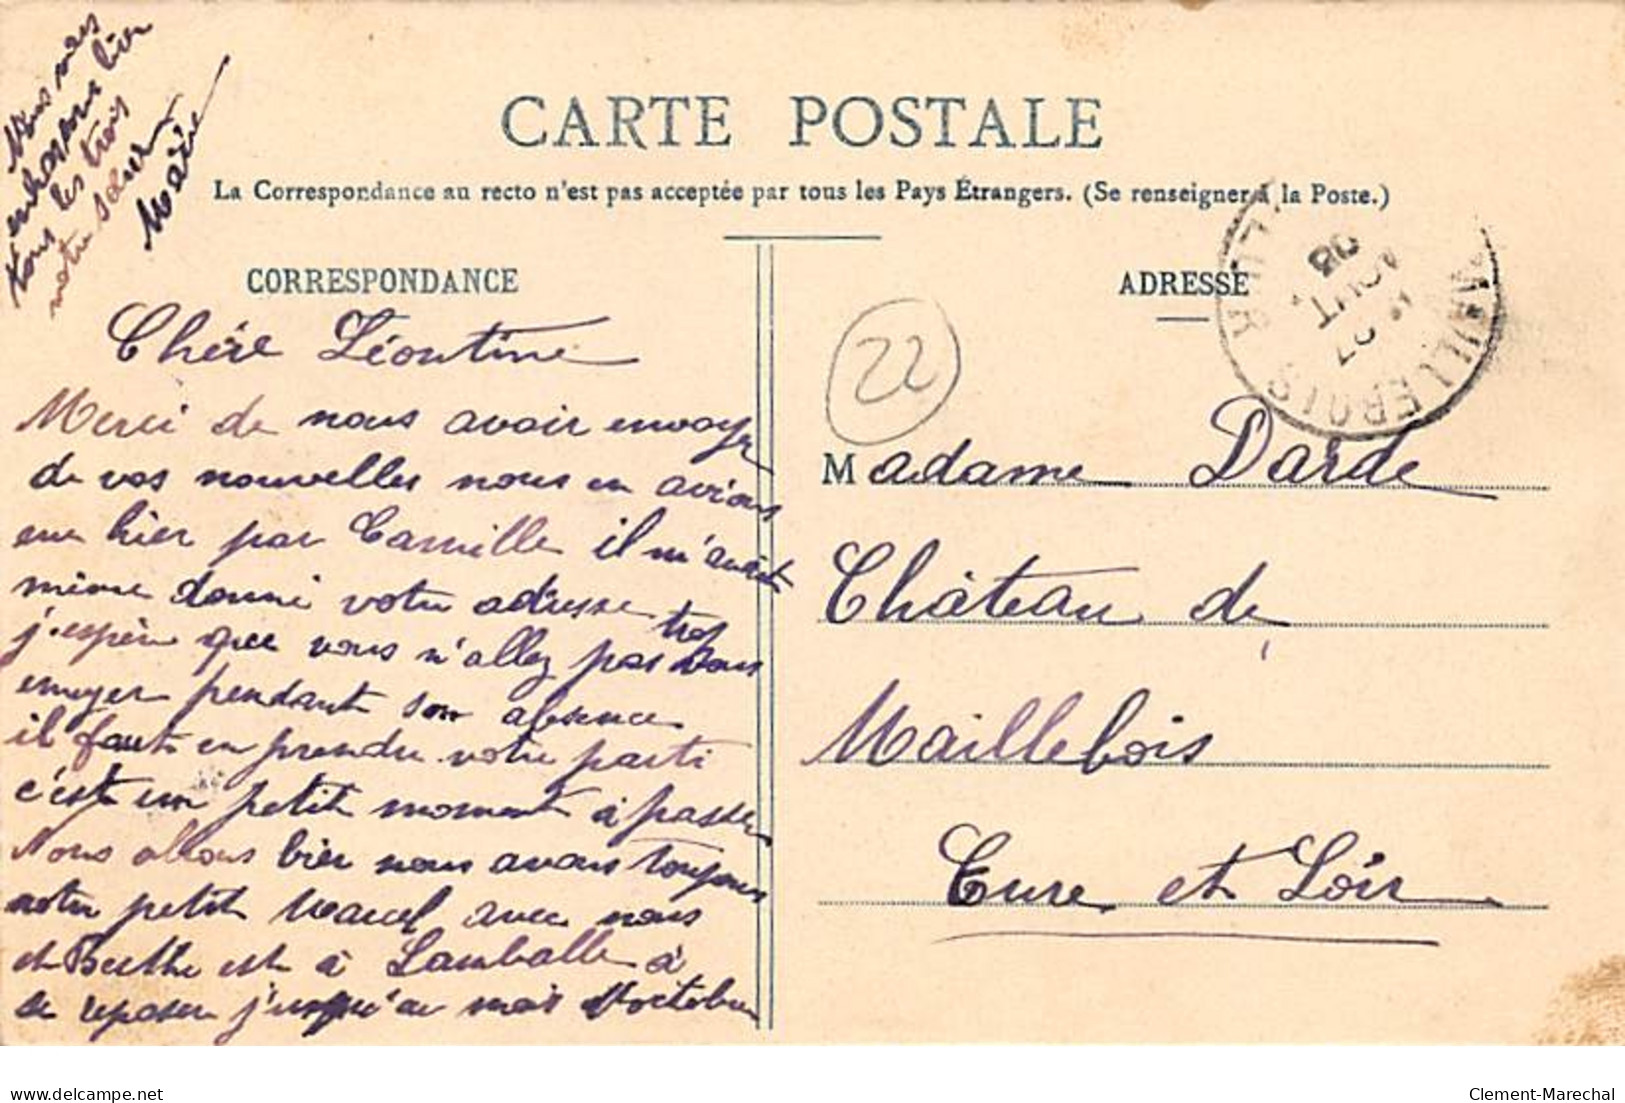 CARTE POSTALE
La Correspondance au recto n'est pas acceptée par tous les Pays Étrangers. (Se renseigner à la Poste.)
CORRESPONDANCE
Chère Léontine
Merci de nous avoir envoyer
de vos nouvelles nous en avions
eue hier par Camille il m'avait
même donné votre adresse
j'espère que vous n'allez pas trop vous
ennuyer pendant son absence
il faut en prendre votre parti
c'est un petit moment à passer
Nous allons bien nous avons toujours
notre petit Marcel avec nous
et Berthe est à Lamballe à
se reposer j'usqu'au mois d'octobre
embrassons bien
tous les trois
votre soeur
Marie
ADRESSE
22
MAILLEBOIS
AOUT
08
Madame Darde
Château de
Maillebois
Eure et Loir
delcampe.net
Clement-Marechal